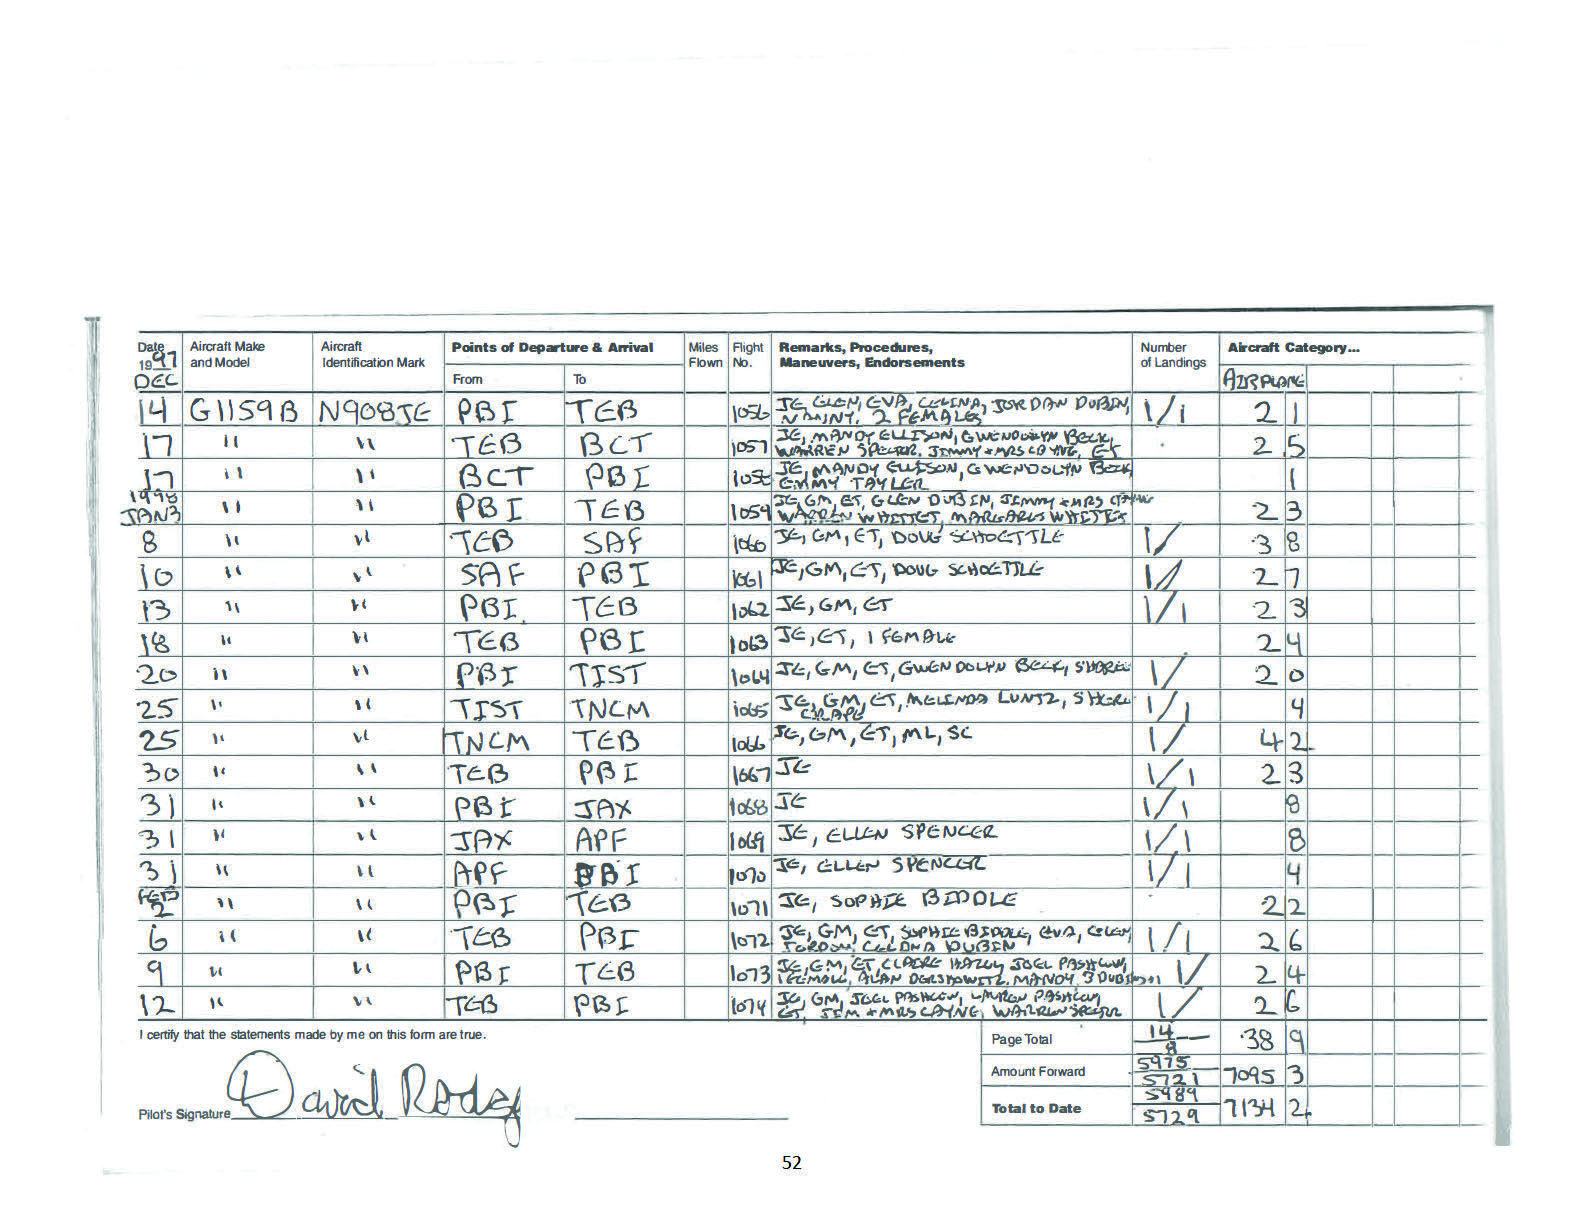 Date Aircraft Make Aircraft Points of Departure & Arrival Miles Flight Remarks, Procedures, Number Aircraft Category...
1997 and Model Identification Mark Flown No. Maneuvers, Endorsements of Landings
DEC From To AIRPLANE
14 G1159B N908JE PBI TEB 1056 JE, GLEN, EVA, CELINA, JORDAN DUBIN, 1/1 2 1
NANNY, 2 FEMALES
17 " " TEB BCT 1057 JE, MANDY ELLISON, GWENDOLYN BECK, 2.5
WARREN SPECTOR, JIMMY + MRS CAYNE, ET
17 " " BCT PBI JE, MANDY ELLISON, GWENDOLYN BECK 1
EMMY TAYLER
1998
JAN 3 " " PBI TEB 1059 JE, GM, ET, GLEN DUBIN, JIMMY + MRS 2 3
8 " " TEB SAF 1060 JE, GM, ET, DOUG SCHOETTLE 1/ 3 8
10 " " SAF PBI 1061 JE, GM, ET, DOUG SCHOETTLE 1/ 2 7
13 " " PBI TEB 1062 JE, GM, ET 1/1 2 3
18 " " TEB PBI 1063 JE, ET, 1 FEMALE 2 4
20 " " PBI TIST 1064 JE, GM, ET, GWENDOLYN BECK, 1/ 2 0
25 " " TIST TNCM 1065 JE, GM, ET, MELINDA LUNTZ, 1/1 4
25 " " TNCM TEB 1066 JE, GM, ET, ML, SC 1/ 4 2
30 " " TEB PBI 1067 JE 1/1 2 3
31 " " PBI JAX 1068 JE 1/1 8
31 " " JAX APF 1069 JE, ELLEN SPENCER 1/1 8
31 " " APF PBI 1070 JE, ELLEN SPENCER 1/1 4
FEB
2 " " PBI TEB 1071 JE, SOPHIE BIDDLE 2 2
6 " " TEB PBI 1072 JE, GM, ET, SOPHIE BIDDLE, EVA, GLEN, 1/1 2 6
JORDAN, CELINA DUBIN
9 " " PBI TEB 1073 JE, GM, ET, CLAIRE HAZEL, JOEL PASHCOW, 1/ 2 4
1 FEMALE, ALAN DERSHOWITZ, MANDY, 3
12 " " TEB PBI 1074 JE, GM, JOEL PASHCOW, LAUREN PASHCOW, 1/ 2 6
ET, JIM + MRS CAYNE, WARREN SPECTOR
I certify that the statements made by me on this form are true. Page Total 14 38 9
8
Amount Forward 5975 7095 3
5721
Pilot's Signature David Rodg Total to Date 5989 7134 2
5729
52